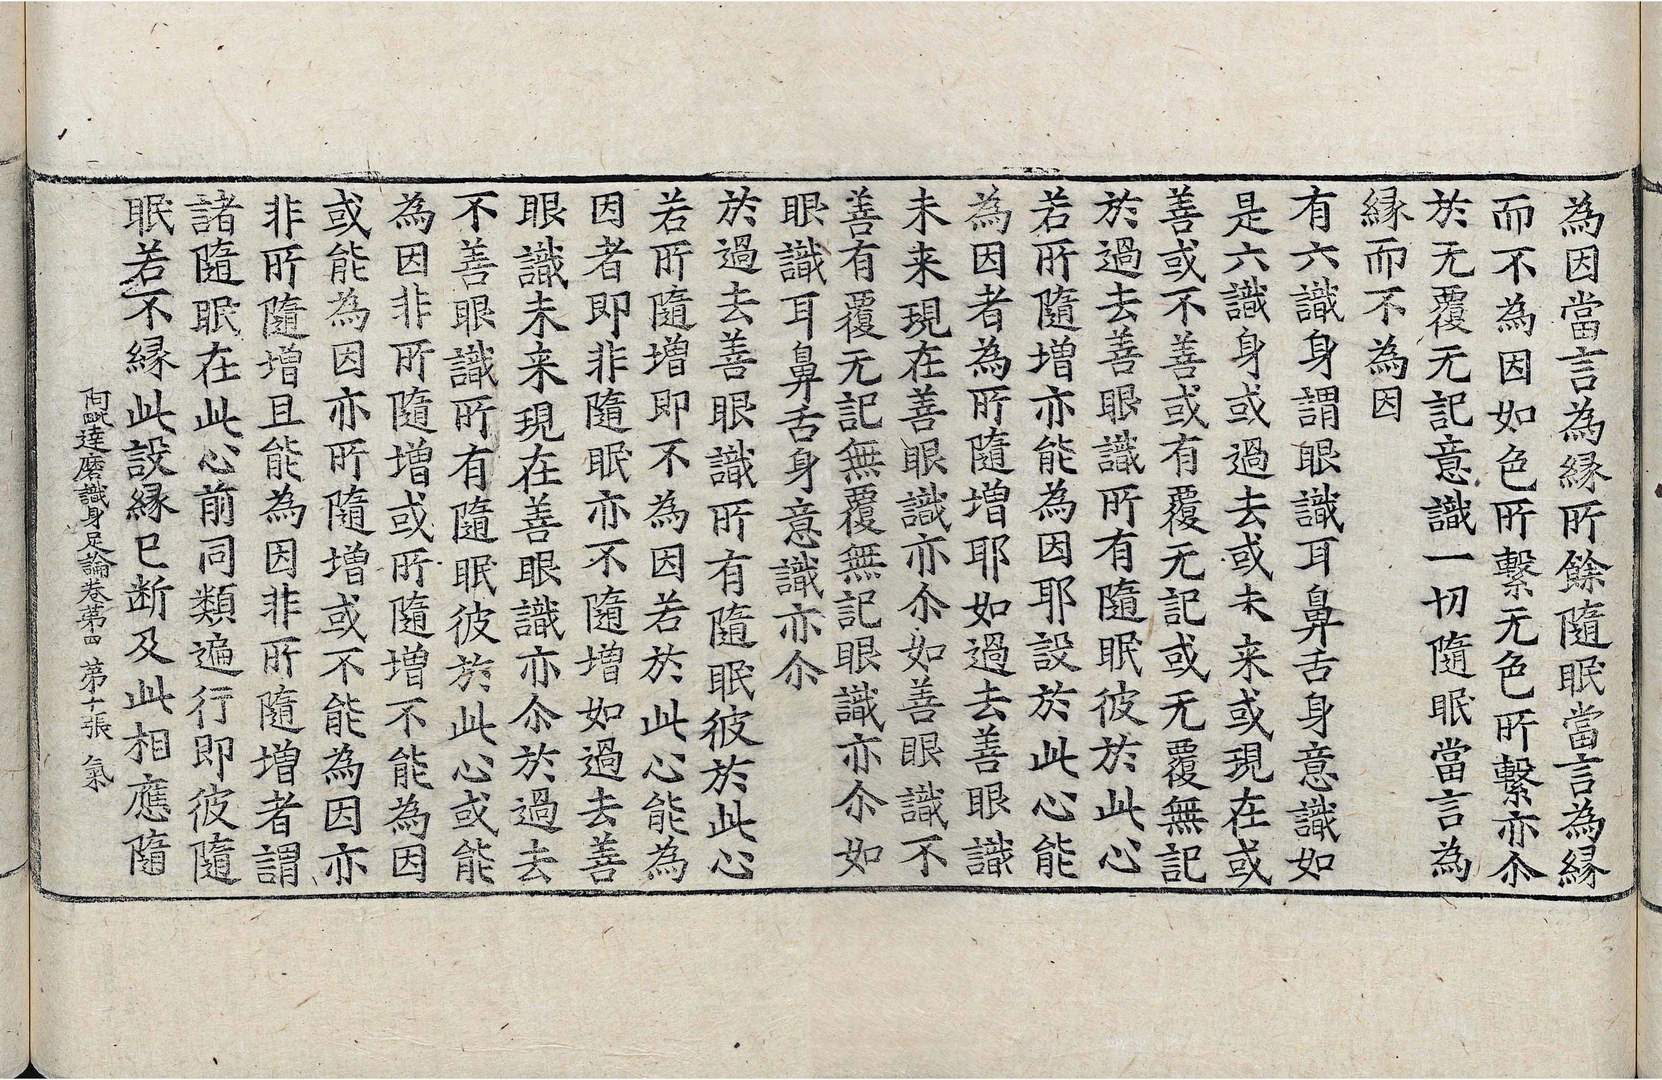 為因當言為縁所餘隨眠當言為縁
而不為因如色所繫无色所繫亦尒
於无覆无記意識一切隨眠當言為
縁而不為因
有六識身謂眼識耳鼻舌身意識如
是六識身或過去或未来或現在或
善或不善或有覆无記或无覆無記
於過去善眼識所有隨眠彼於此心
若所隨增亦能為因耶設於此心能
為因者為所隨增耶如過去善眼識
未来現在善眼識亦尒如善眼識不
善有覆无記無覆無記眼識亦尒如
眼識耳鼻舌身意識亦尒
於過去善眼識所有隨眠彼於此心
若所隨增即不為因若於此心能為
因者即非隨眠亦不隨增如過去善
眼識未来現在善眼識亦尒於過去
不善眼識所有隨眠彼於此心或能
為因非所隨增或所隨增不能為因
或能為因亦所隨增或不能為因亦
非所隨增且能為因非所隨增者謂
諸隨眠在此心前同類遍行即彼隨
眠若不縁此設縁已断及此相應隨
阿毗達磨識身足論卷第四 第十張 氣